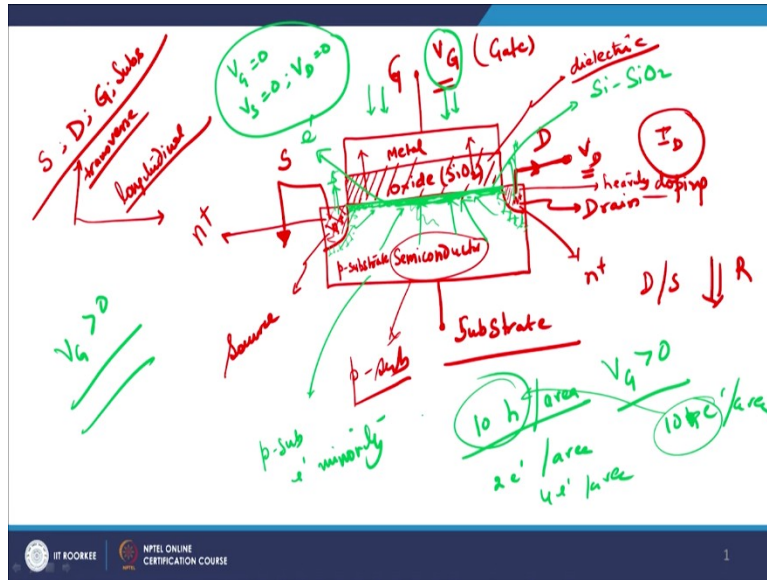 S ; D ; G ; Subs
transverse
longitudinal
V_G = 0
V_S = 0 ; V_D = 0
e'
G
V_G (Gate)
dielectric
Si-SiO2
Metal
oxide (SiO2)
S
D
V_D
I_D
heavily doping
Drain
n+
n+
n+
p-substrate
Semiconductor
Source
p-sub
Substrate
D/S
R
V_G > 0
V_G > 0
p-sub
e' minority
10 h /area
2 e' /area
4 e' /area
e' /area
IIT ROORKEE
NPTEL ONLINE
CERTIFICATION COURSE
1